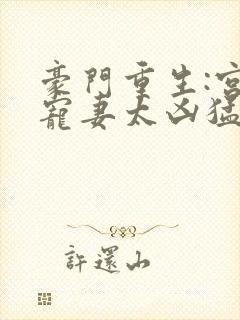 豪門重生:宮
寵妻太凶猛
許還山